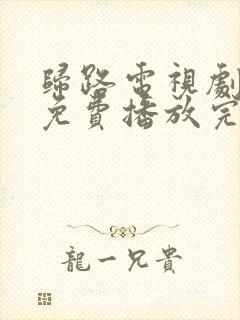 歸路電視劇
免費播放完
龍一兄貴